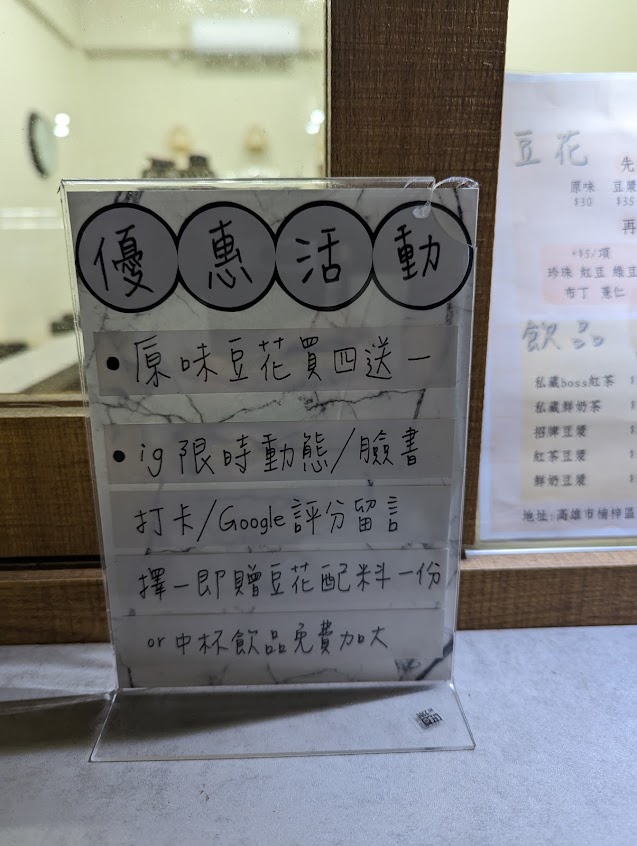 優惠活動
• 原味豆花買四送一
• ig 限時動態/臉書
打卡/Google評分留言
擇一即贈豆花配料一份
or 中杯飲品免費加大
豆花
先
原味 豆漿
$30 $35
再
+$5/項
珍珠 紅豆 綠豆
布丁 薏仁
飲品
私藏boss紅茶
私藏鮮奶茶
招牌豆漿
紅茶豆漿
鮮奶豆漿
地址:高雄市楠梓區